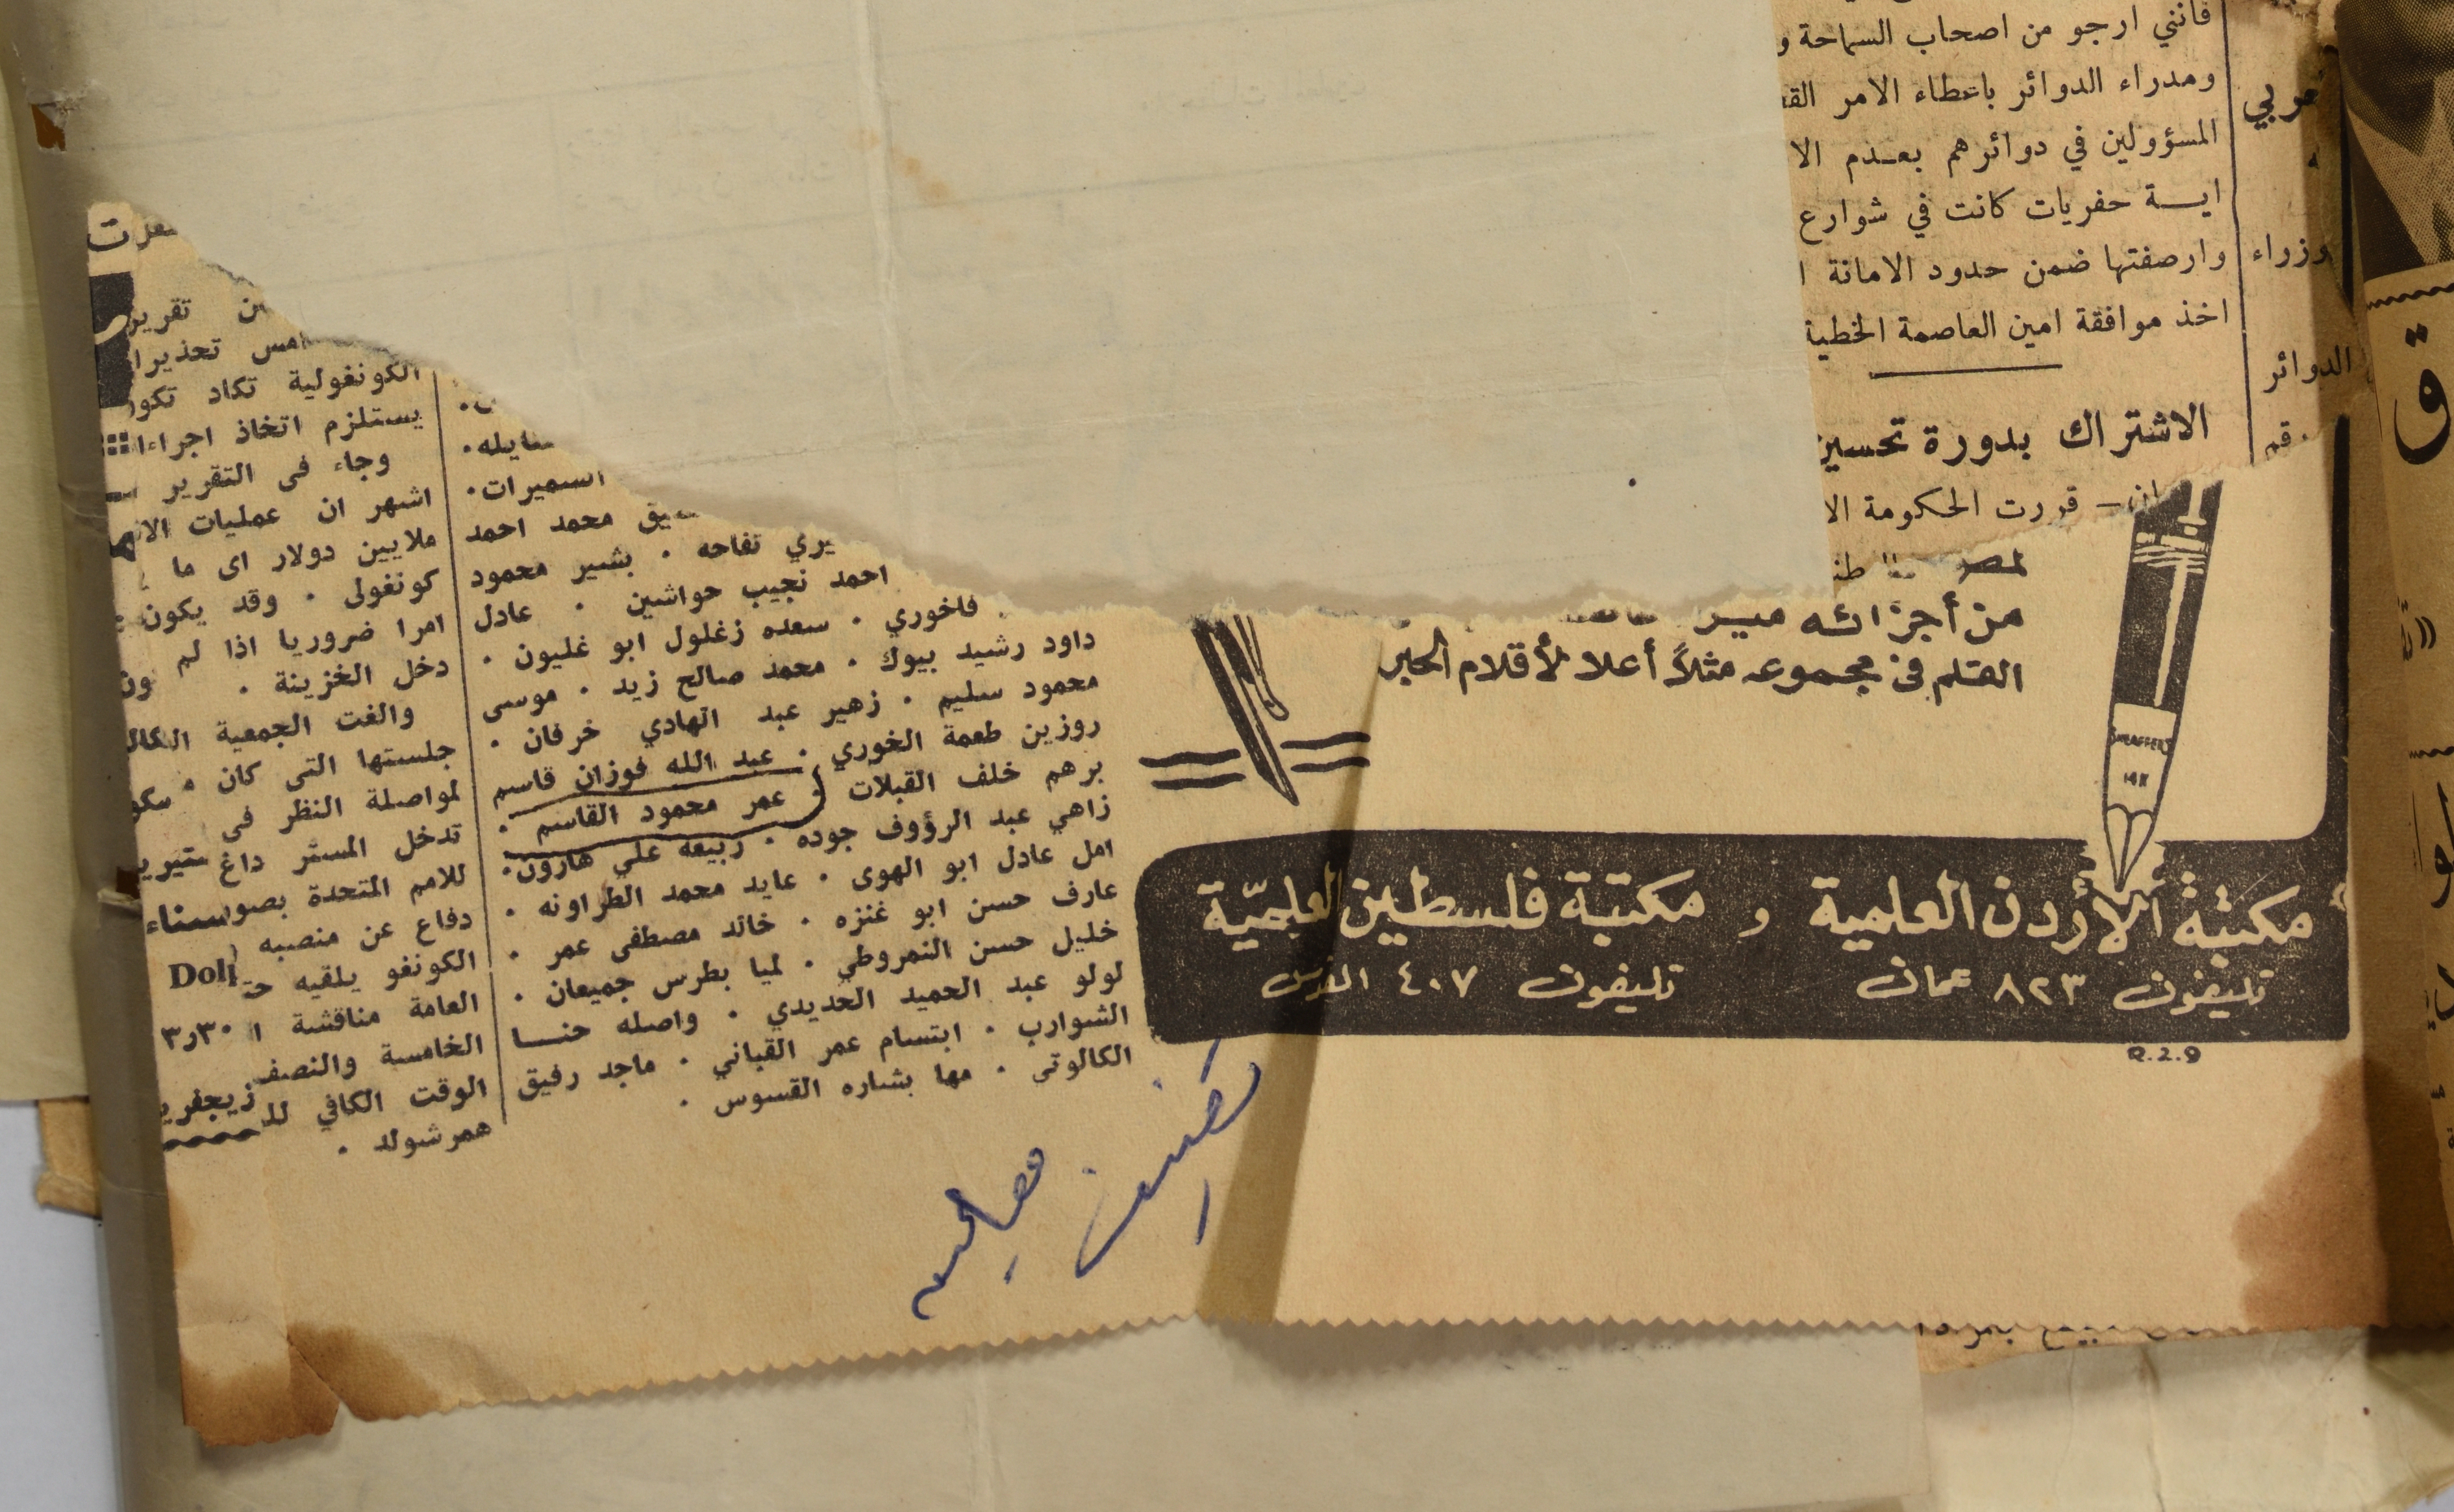 فانني ارجو من اصحاب السماحة و
ومدراء الدوائر باعطاء الامر
المسؤولين في دوائرهم بعدم الا
اية حفريات كانت في شوارع
وارصفتها ضمن حدود الامانة ا
اخذ موافقة امين العاصمة الخطية
الاشتراك بدورة تحسين
قررت الحكومة الا
وزراء
الدوائر
قم
ق
من أجزائه
القلم في مجموعه مثلاً أعلا لأقلام الحبر
SHEAFFER'S
14K
مكتبة الأردن العلمية و مكتبة فلسطين العلميّة
تليفون ٨٢٣ عمان تليفون ٤٠٧ القدس
R.2.9
السميرات.
محمد احمد
يري تفاحه . بشير محمود
احمد نجيب حواشين . عادل
فاخوري . سعده زغلول ابو غليون .
داود رشيد بيوك . محمد صالح زيد . موسى
محمود سليم . زهير عبد الهادي خرفان .
روزين طعمة الخوري . عبد الله فوزان قاسم
برهم خلف القبلات . عمر محمود القاسم .
زاهي عبد الرؤوف جوده . ربيعه علي هارون.
امل عادل ابو الهوى . عايد محمد الطراونه .
عارف حسن ابو غنزه . خالد مصطفى عمر .
خليل حسن النمروطي . لميا بطرس جميعان .
لولو عبد الحميد الحديدي . واصله حنا
الشوارب . ابتسام عمر القباني . ماجد رفيق
الكالوتي . مها بشاره القسوس .
تقرير
امس تحذيرا
الكونغولية تكاد تكو
يستلزم اتخاذ اجراءا
وجاء في التقرير
اشهر ان عمليات الا
ملايين دولار اى ما
كونغولى . وقد يكون
امرا ضروريا اذا لم
دخل الخزينة .
والغت الجمعية
جلستها التى كان
لمواصلة النظر فى
تدخل المستر داغ
للامم المتحدة بصو
دفاع عن منصبه
الكونغو يلقيه
العامة مناقشة ا
الخامسة والنصف
الوقت الكافي لل
همرشولد .
سناء
Doll
٣٠ر٣
زيجفري